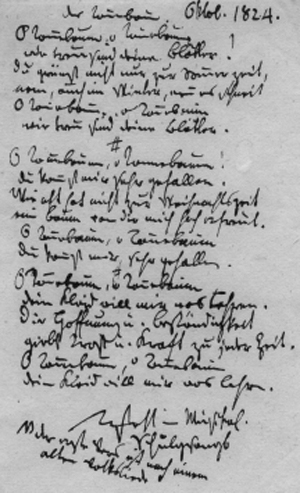 der Tannebaum, Oktob. 1824.
O Tannebaum, o Tannebaum!
wie treu sind deine Blätter!
Du grünst nicht nur zur Sommerzeit,
nein, auch im Winter, wenn es schneit
O Tannebaum, o Tannebaum
wie treu sind deine Blätter.
#
O Tannebaum, o Tannebaum!
du kannst mir sehr gefallen.
Wie oft hat nicht zur Weihnachtszeit
ein Baum von dir mich hoch erfreut.
O Tannebaum, o Tannebaum
du kannst mir sehr gefallen.
O Tannebaum, o Tannebaum
dein Kleid will mich was lehren.
Die Hoffnung u. Beständigkeit
giebt Trost u. Kraft zu jeder Zeit.
O Tannebaum, o Tannebaum
dein Kleid will mich was lehren.
der erste Vers ist nach einem
alten Volksliede